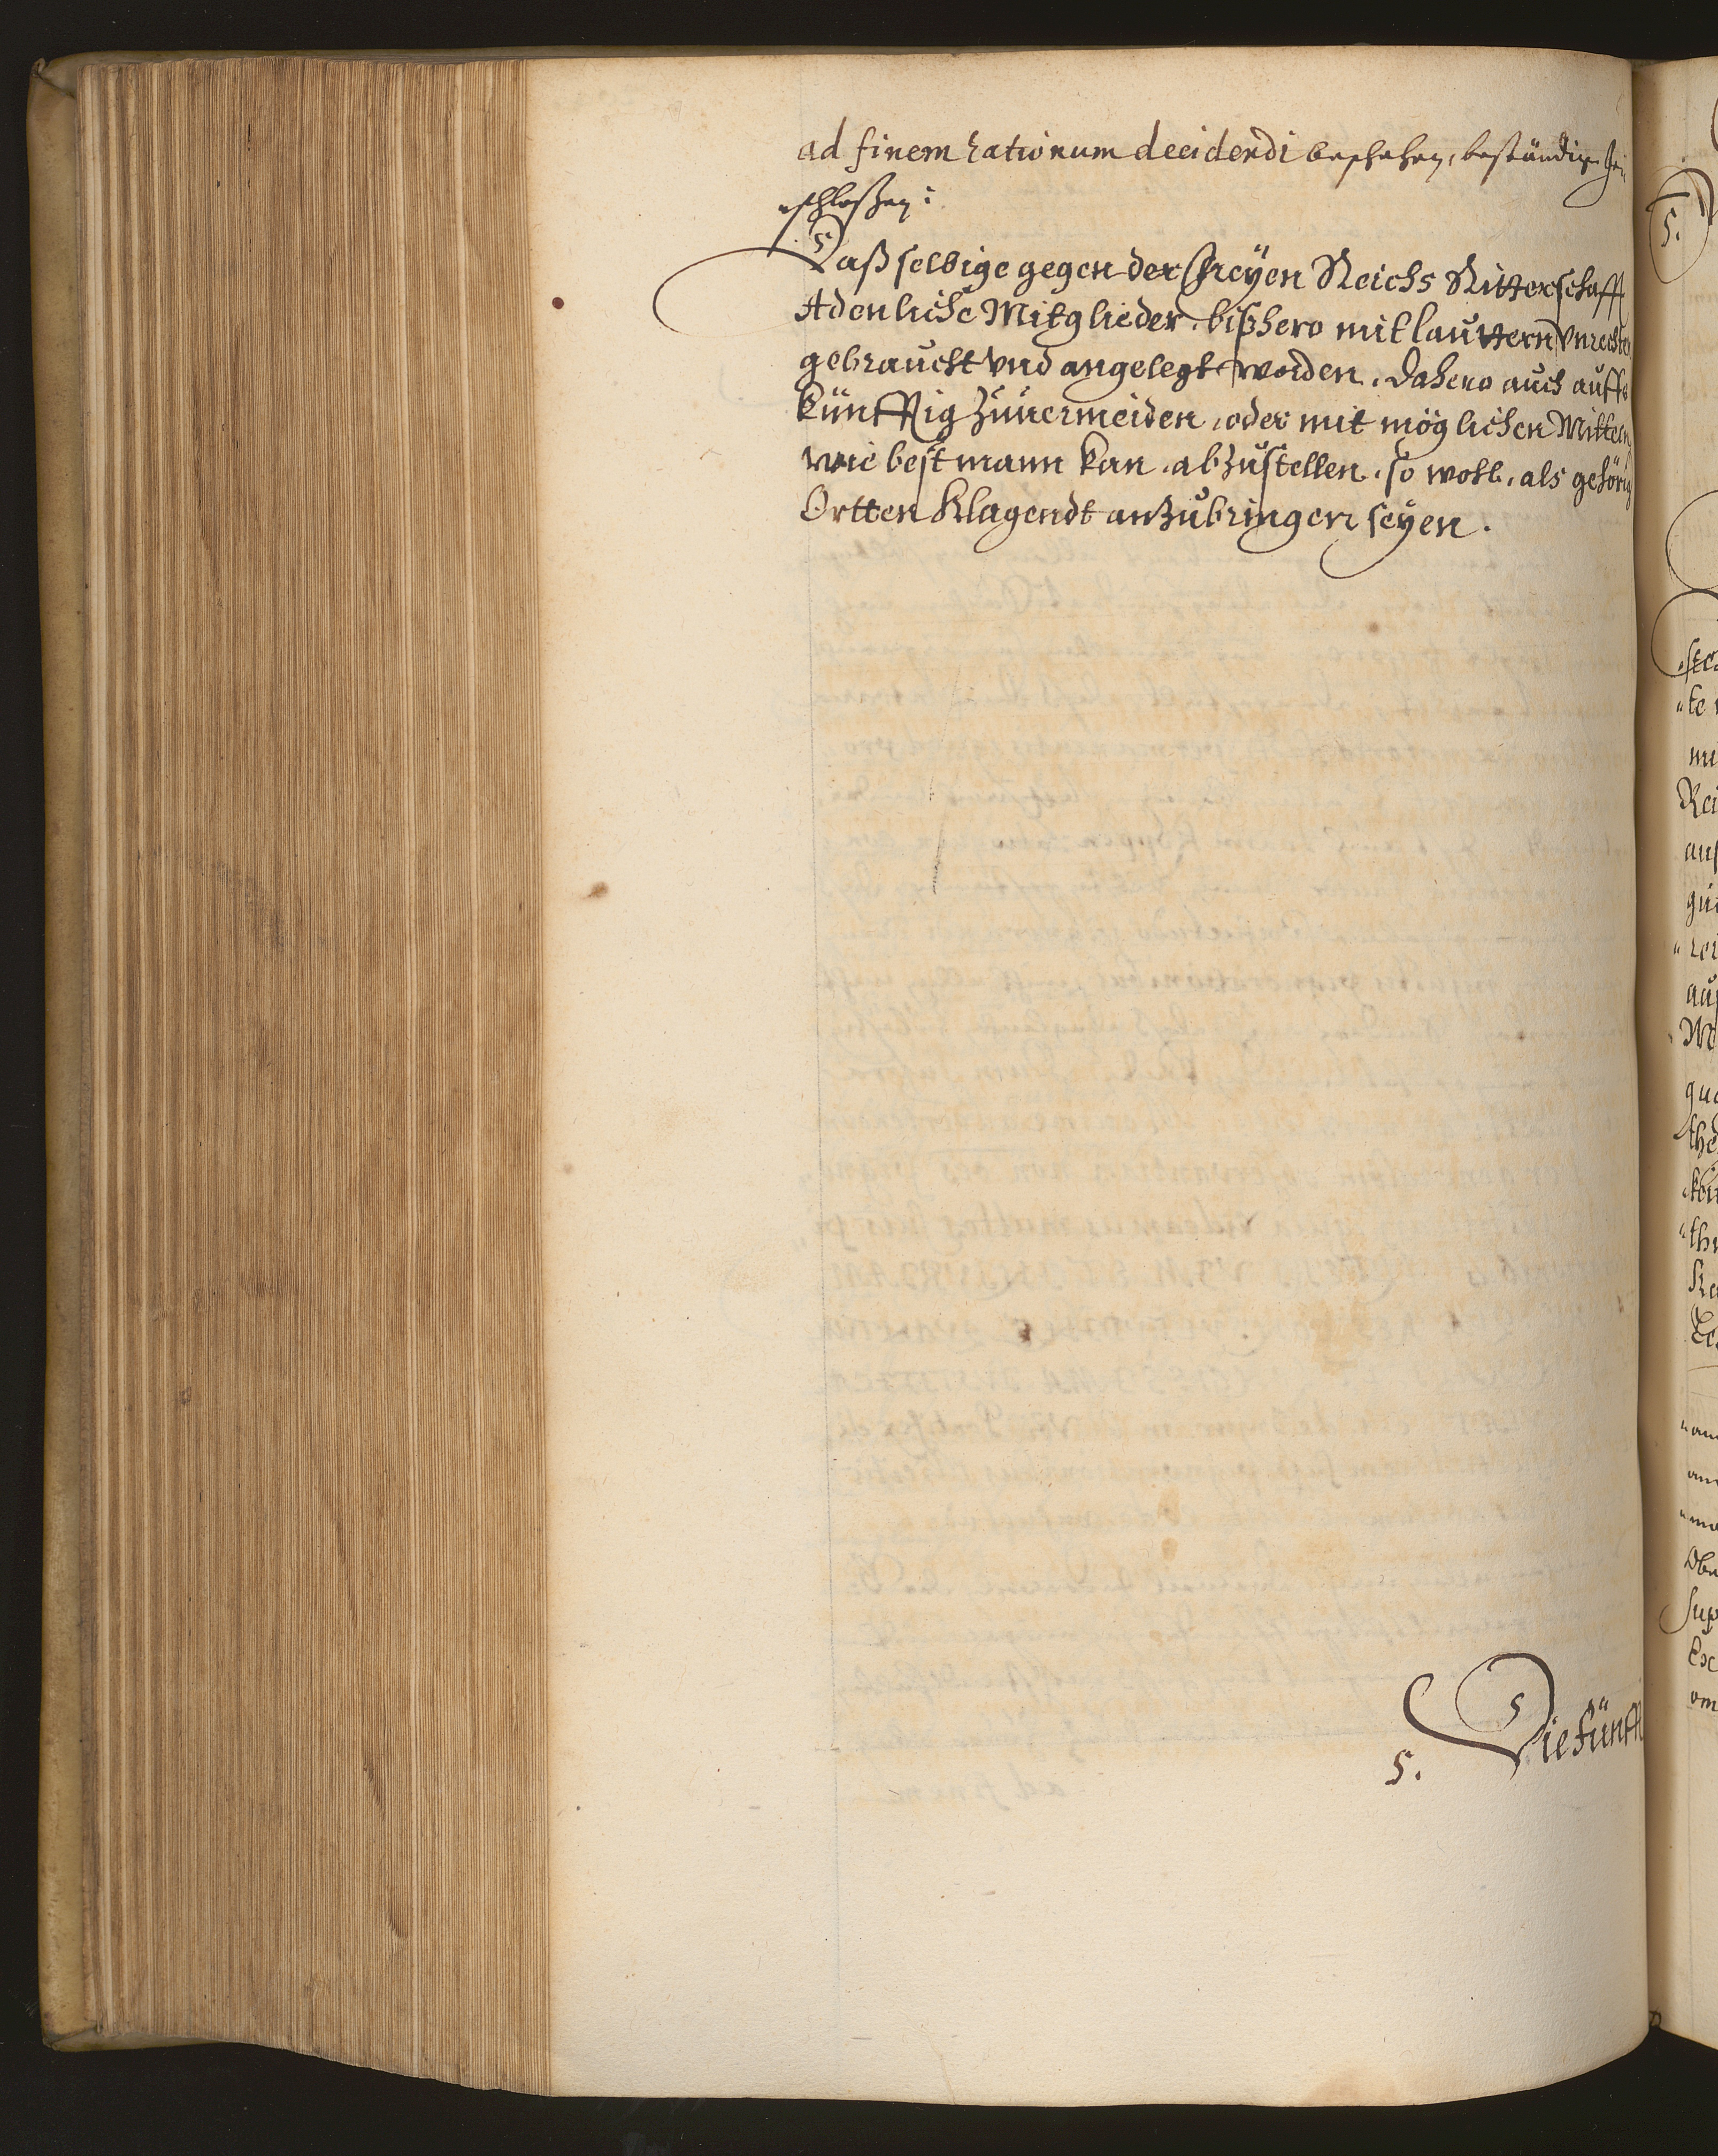 ad finem rationum decidendi beschehen, beständig
„schloßen:
Daß selbige gegen der Freÿen Reichs Ritterschafft
Adenliche Mitglieder, bißhero mit lauttern Vnrechten
gebraucht vnd angelegt worden, dahero auch auffs
künfftig Zuuermeiden, oder mit möglichen Mitteln
wie best mann kan, abzustellen, so wohl, als gehörig
Ortten Klagendt anzubringen seÿen.
5. Die fünfft
5.